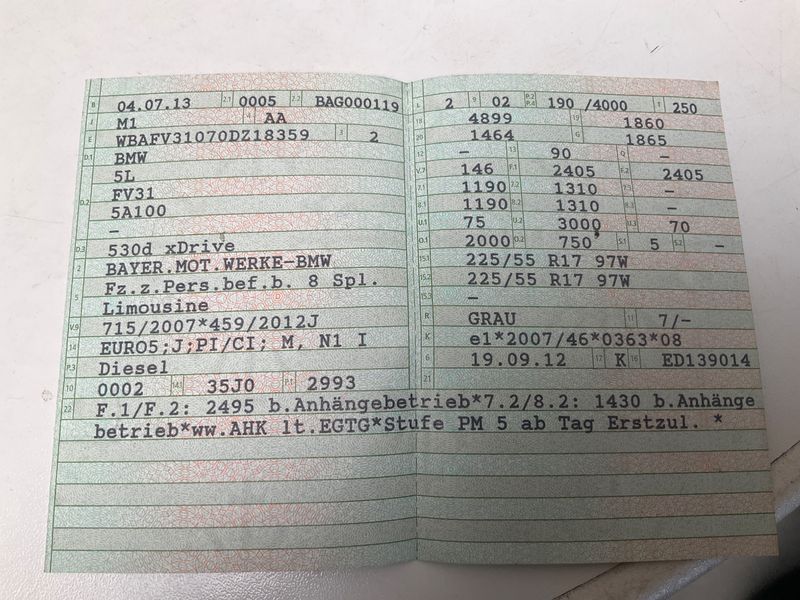 B 04.07.13 2.1 0005 2.2 BAG000119
J M1 4 AA
E WBAFV31070DZ18359 3 2
D.1 BMW
5L
D.2 FV31
5A100
–
D.3 530d xDrive
2 BAYER.MOT.WERKE-BMW
Fz.z.Pers.bef.b. 8 Spl.
5 Limousine
V.9 715/2007*459/2012J
14 EURO5;J;PI/CI; M, N1 I
P.3 Diesel
10 0002 14.1 35J0 P.1 2993
L 2 9 02 P.2 P.4 190 /4000 T 250
18 4899 19 1860
20 1464 G 1865
12 – 13 90 Q –
V.7 146 F.1 2405 F.2 2405
7.1 1190 7.2 1310 7.3 –
8.1 1190 8.2 1310 8.3 –
U.1 75 U.2 3000 U.3 70
O.1 2000 O.2 750 S.1 5 S.2 –
15.1 225/55 R17 97W
15.2 225/55 R17 97W
15.3 –
R GRAU 11 7/-
K e1*2007/46*0363*08
6 19.09.12 17 K 16 ED139014
21
22 F.1/F.2: 2495 b.Anhängebetrieb*7.2/8.2: 1430 b.Anhänge
betrieb*ww.AHK lt.EGTG*Stufe PM 5 ab Tag Erstzul. *